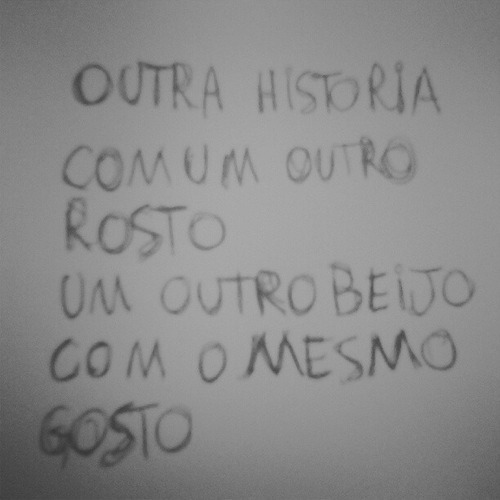 OUTRA HISTORIA
COM UM OUTRO
ROSTO
UM OUTRO BEIJO
COM O MESMO
GOSTO